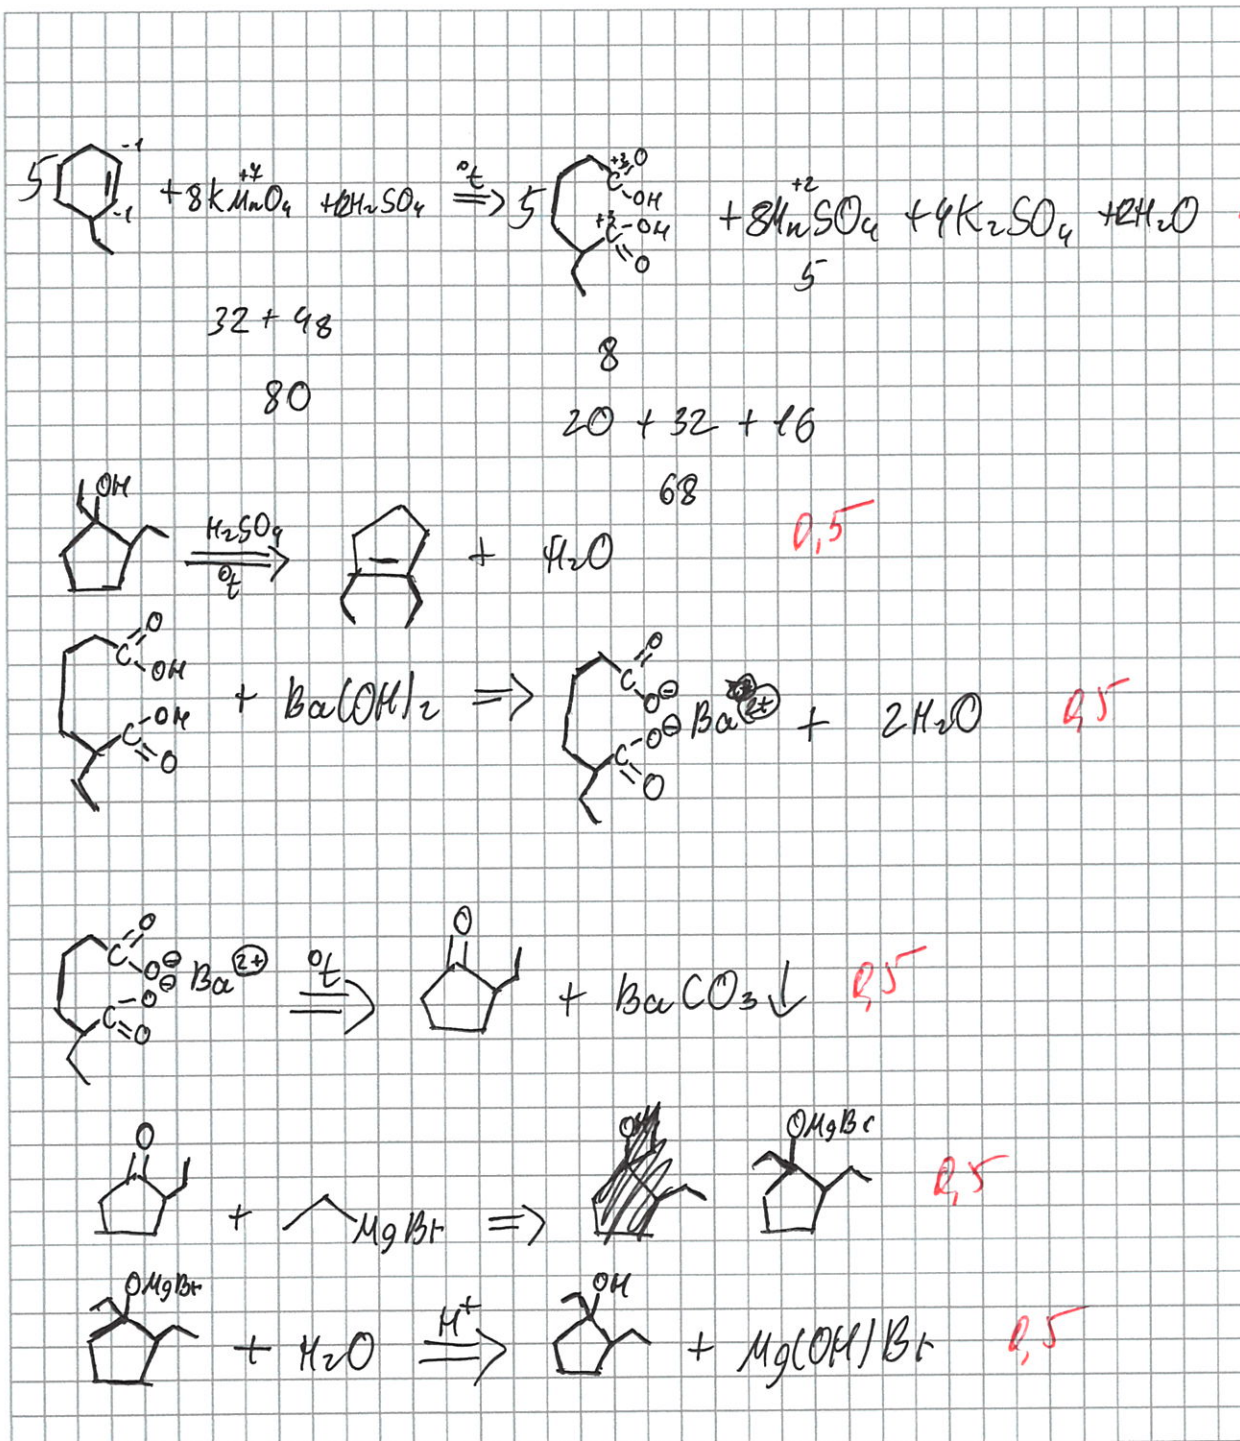 5 -1 -1 + 8KMnO₄ +7 + 12H₂SO₄ °t ⇒ 5 +3 C=O -OH +3 C-OH =O + 8MnSO₄ +2 + 4K₂SO₄ + 12H₂O
5
32 + 48
8
80
20 + 32 + 16
68
OH H₂SO₄ °t ⇒ + H₂O 0,5
C=O -OH C-OH =O + Ba(OH)₂ ⇒ C=O -O⊖ C-O⊖ =O Ba 2+ + 2H₂O 0,5
C=O -O⊖ C-O⊖ =O Ba 2+ °t ⇒ O + BaCO₃↓ 0,5
O + MgBr ⇒ OMgBr 0,5
OMgBr + H₂O H⁺ ⇒ OH + Mg(OH)Br 0,5